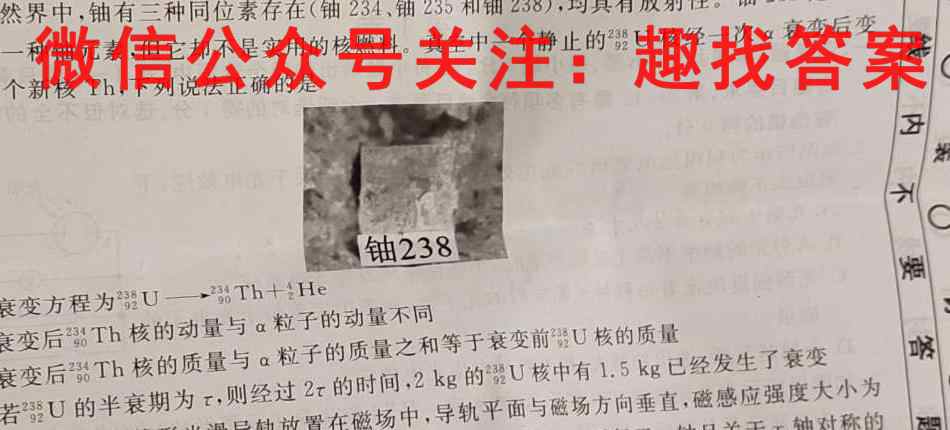 然界中,铀有三种同位素存在(铀 234、铀 235 和铀 238),均具有放射性。铀
一种铀元素,但它却不是实用的核燃料。其中一个静止的²³⁸₉₂U 核经一次 α 衰变后变
个新核 Th,下列说法正确的是
微信公众号关注：趣找答案
铀238
衰变方程为²³⁸₉₂U⟶²³⁴₉₀Th+⁴₂He
衰变后²³⁴₉₀Th 核的动量与 α 粒子的动量不同
衰变后²³⁴₉₀Th 核的质量与 α 粒子的质量之和等于衰变前²³⁸₉₂U 核的质量
若²³⁸₉₂U 的半衰期为 τ,则经过 2τ 的时间,2 kg 的²³⁸₉₂U 核中有 1.5 kg 已经发生了衰变
光滑导轨放置在磁场中,导轨平面与磁场方向垂直,磁感应强度大小为
轴对称的
线
内
不
要
答
题
装